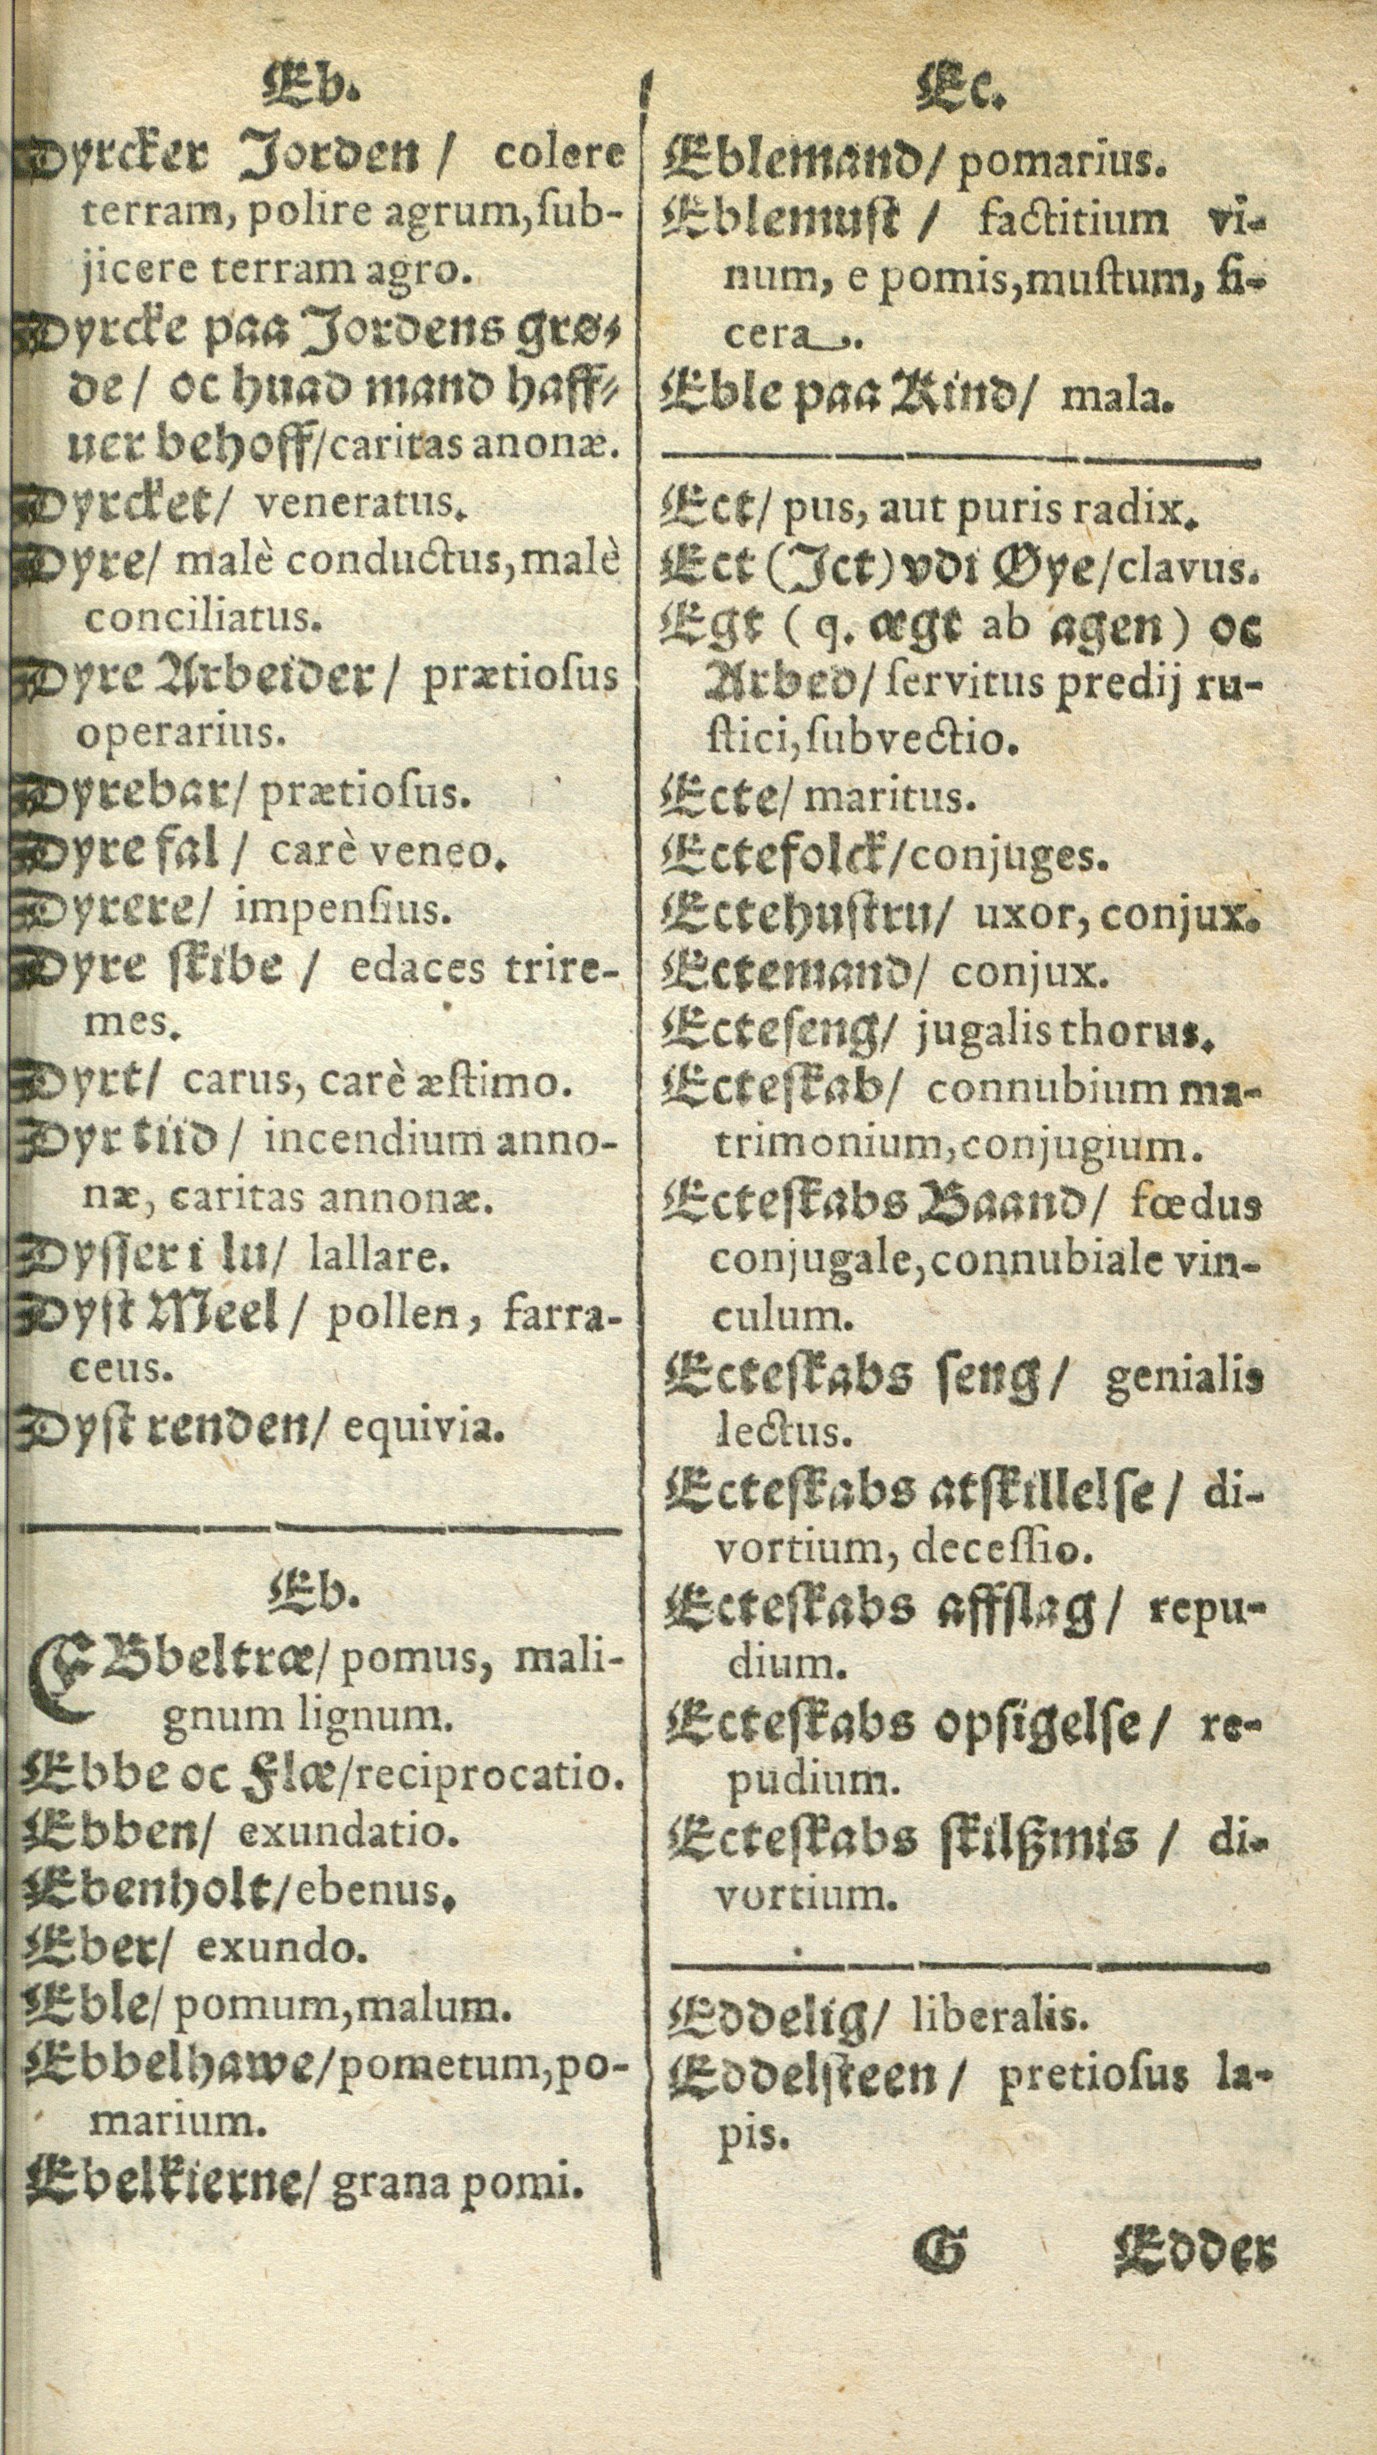 Eb.
Dyrcker Jorden / colere
terram, polire agrum, ſub-
jicere terram agro.
Dyrcke paa Jordens grø-
de / oc huad mand haff-
uer behoff / caritas anonæ.
Dyrcket / veneratus.
Dyre / malè conductus, malè
conciliatus.
Dyre Arbeider / prætioſus
operarius.
Dyrebar / prætioſus.
Dyre fal / carè veneo.
Dyrere / impenſius.
Dyre ſkibe / edaces trire-
mes.
Dyrt / carus, carè æſtimo.
Dyr tiid / incendium anno-
næ, caritas annonæ.
Dyſſer i lu / lallare.
Dyſt Meel / pollen, farra-
ceus.
Dyſt renden / equivia.
Eb.
EBbeltræ / pomus, mali-
gnum lignum.
Ebbe oc Flæ / reciprocatio.
Ebben / exundatio.
Ebenholt / ebenus.
Eber / exundo.
Eble / pomum, malum.
Ebbelhawe / pometum, po-
marium.
Ebelkierne / grana pomi.
Ec.
Eblemand / pomarius.
Eblemuſt / factitium vi-
num, e pomis, muſtum, ſi-
cera.
Eble paa Kind / mala.
Ect / pus, aut puris radix.
Ect (Ict) vdi Øye / clavus.
Egt (q. ægt ab agen) oc
Arbed / ſervitus predij ru-
ſtici, ſubvectio.
Ecte / maritus.
Ectefolck / conjuges.
Ectehuſtru / uxor, conjux.
Ectemand / conjux.
Ecteſeng / jugalis thorus.
Ecteſkab / connubium ma-
trimonium, conjugium.
Ecteſkabs Baand / fœdus
conjugale, connubiale vin-
culum.
Ecteſkabs ſeng / genialis
lectus.
Ecteſkabs atſkillelſe / di-
vortium, deceſſio.
Ecteſkabs affſlag / repu-
dium.
Ecteſkabs opſigelſe / re-
pudium.
Ecteſkabs ſkilßmis / di-
vortium.
Eddelig / liberalis.
Eddelſteen / pretioſus la-
pis.
G Edder